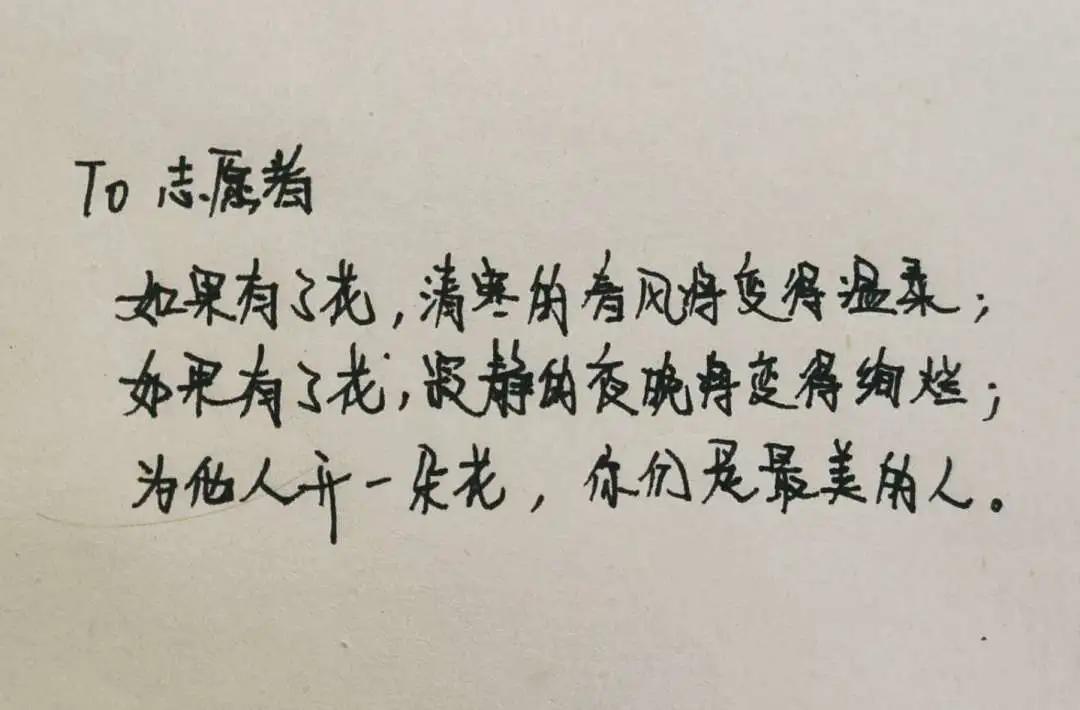 To 志愿者
如果有了花，清寒的春风将变得温柔；
如果有了花，寂静的夜晚将变得绚烂；
为他人开一朵花，你们是最美的人。